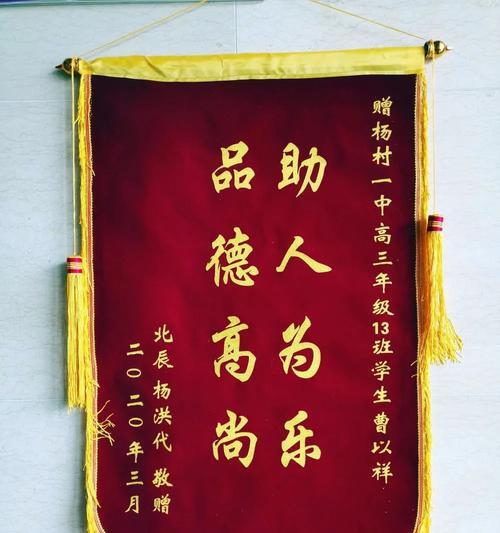 赠杨村一中高三年级13班学生曹以祥
助人为乐
品德高尚
北辰杨洪代敬赠
二〇二〇年三月